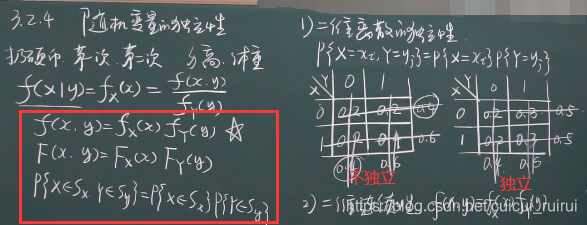 3.2.4 随机变量的独立性
扔硬币 第一次.第二次 身高.体重
f(x|y)=f_X(x)=f(x.y)/f_Y(y)
f(x.y)=f_X(x) f_Y(y) ☆
F(x.y)=F_X(x) F_Y(y)
P{X∈S_x.Y∈S_y}=P{X∈S_x}P{Y∈S_y}
1)二维离散的独立性
P{X=x_i,Y=y_j}=P{X=x_i}P{Y=y_j}
X Y 0 1
0 0.2 0.2 0.4
1 0.2 0.6
0.4 0.6
不独立
X Y 0 1
0 0.2 0.3 0.5
1 0.2 0.3 0.5
0.4
独立
2)二维连续